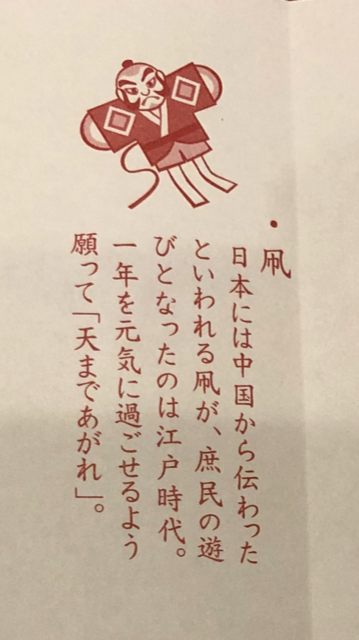 ・凧
日本には中国から伝わった
といわれる凧が、庶民の遊
びとなったのは江戸時代。
一年を元気に過ごせるよう
願って「天まであがれ」。